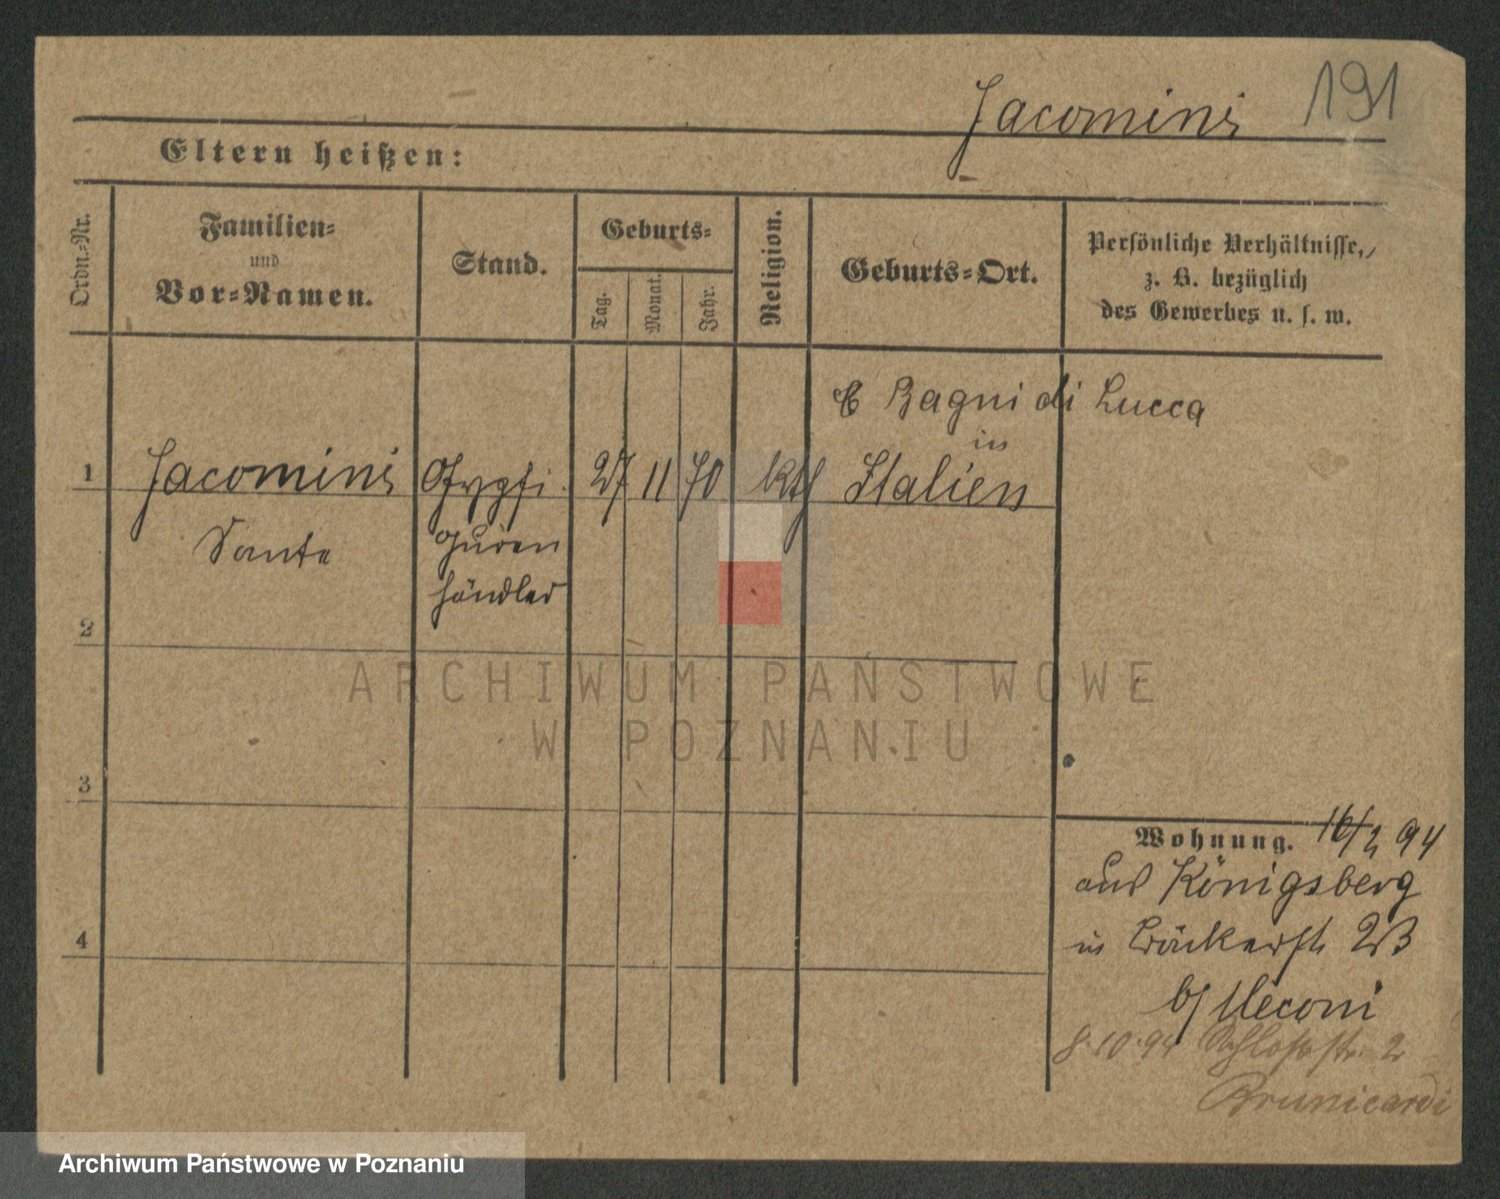 191
Jacomini
Eltern heißen:
Ordn.-Nr.
Familien-
und
Vor-Namen.
Stand.
Geburts-
Tag.
Monat.
Jahr.
Religion.
Geburts-Ort.
Persönliche Verhältnisse,
z. B. bezüglich
des Gewerbes u. s. w.
Bagni di Lucca
in
1 Jacomini Gypsfi 27 11 70 kth Italien
Sante guren
händler
2
3
4
Wohnung. 16/2 94
aus Königsberg
in Bäckerstr
b/ Meconi
8.10.94 Schlossstr. 2
Brunicardi
ARCHIWUM PAŃSTWOWE
W POZNANIU
Archiwum Państwowe w Poznaniu